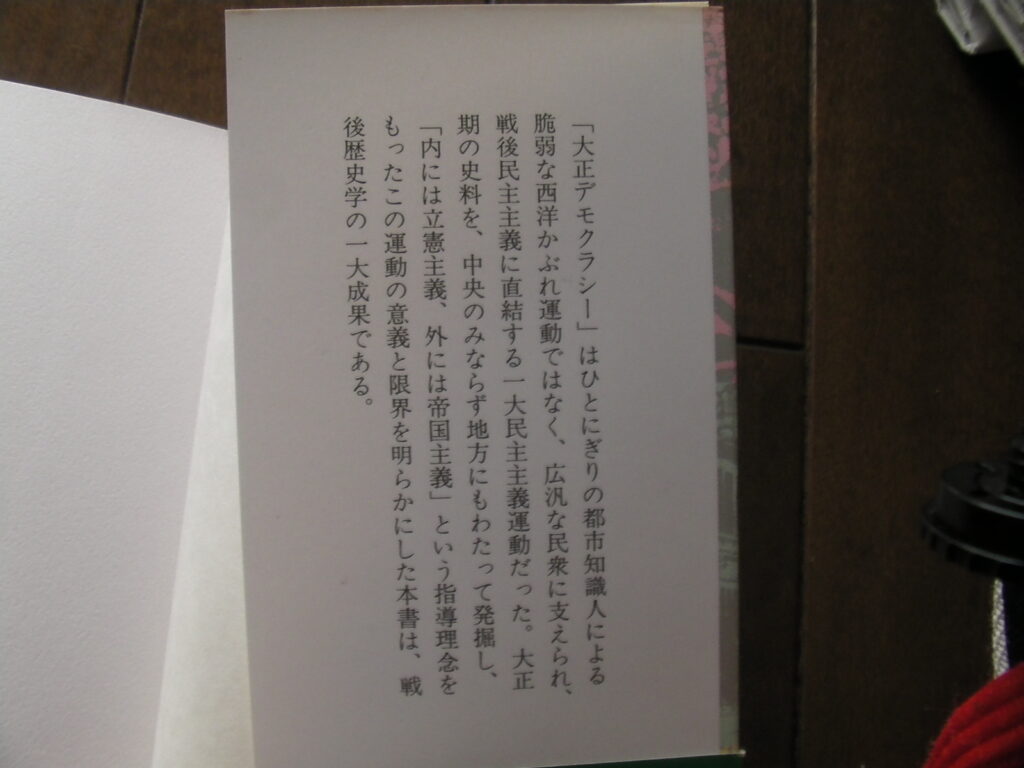 「大正デモクラシー」はひとにぎりの都市知識人による
脆弱な西洋かぶれ運動ではなく、広汎な民衆に支えられ、
戦後民主主義に直結する一大民主主義運動だった。大正
期の史料を、中央のみならず地方にもわたって発掘し、
「内には立憲主義、外には帝国主義」という指導理念を
もったこの運動の意義と限界を明らかにした本書は、戦
後歴史学の一大成果である。